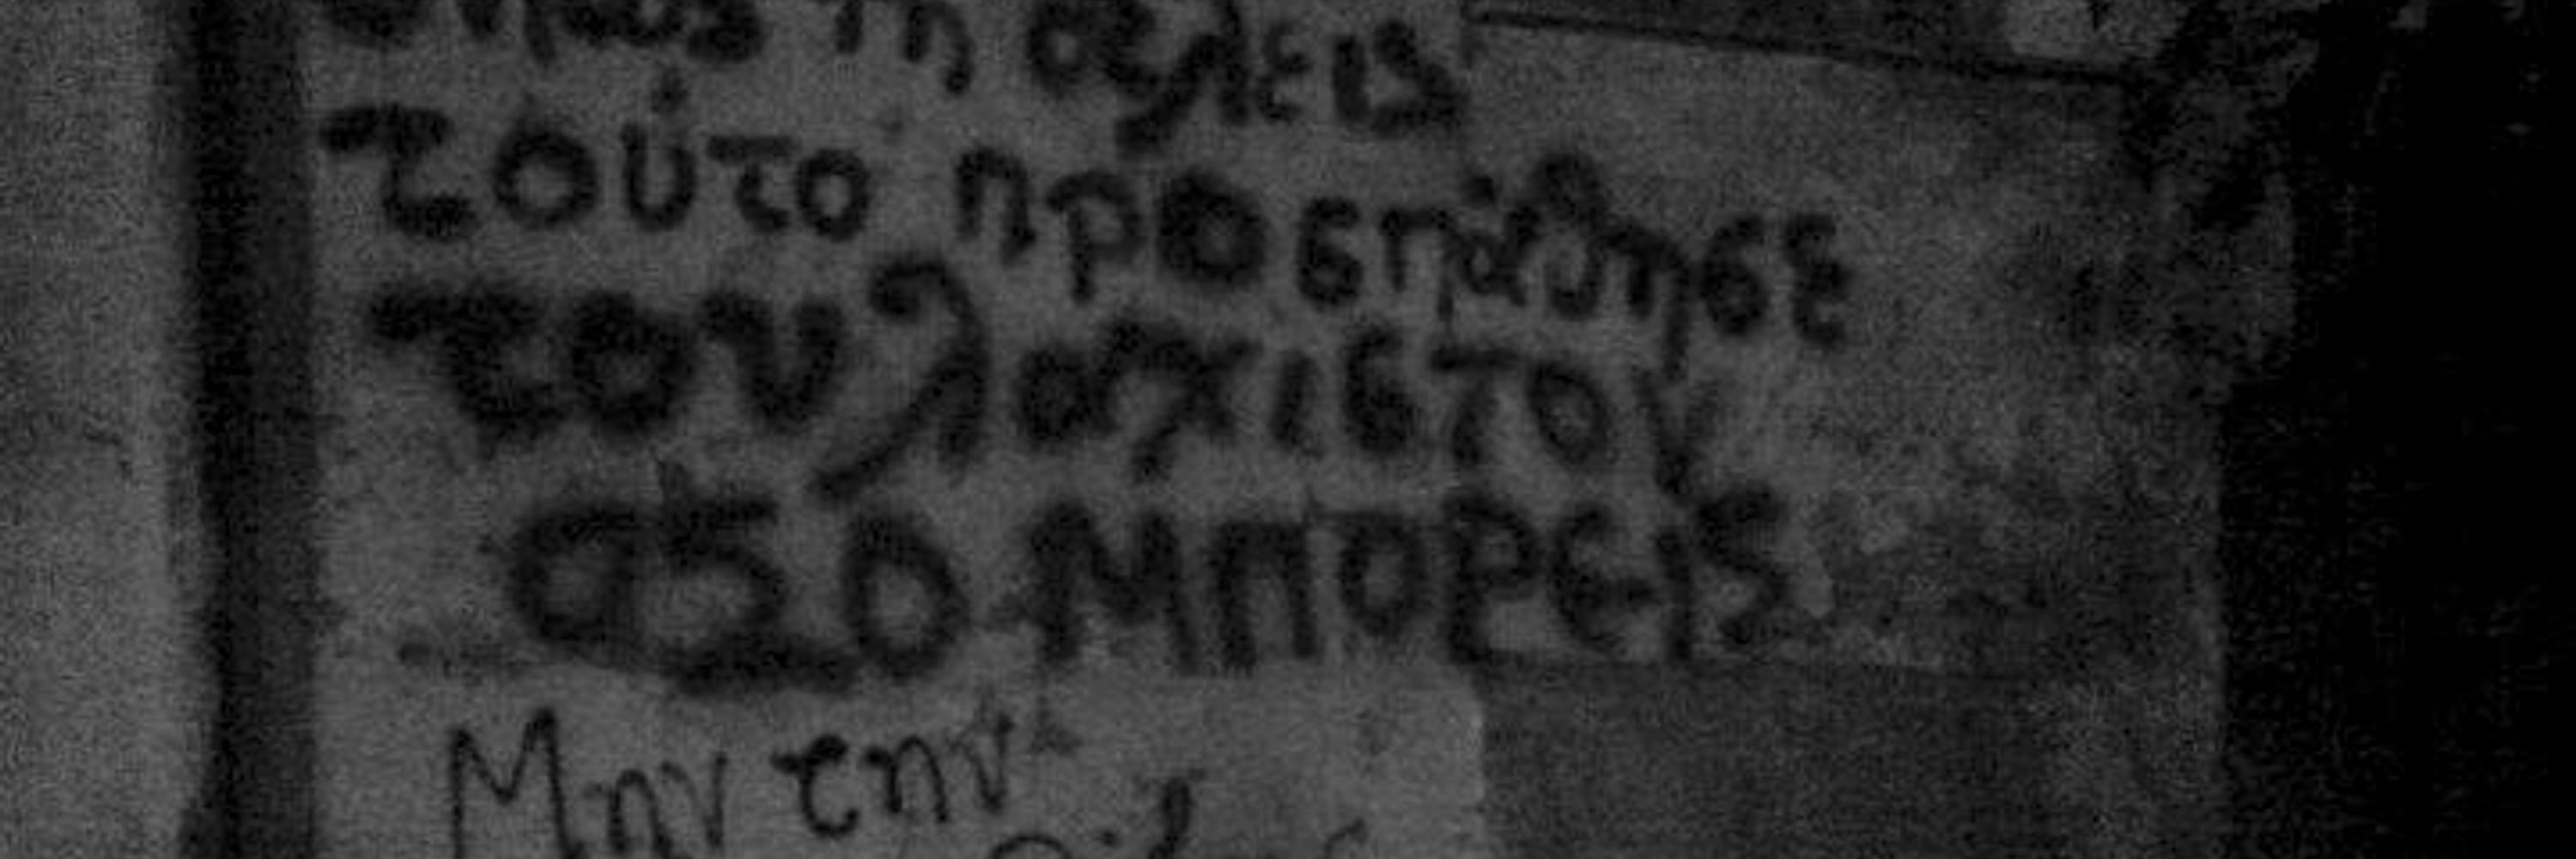 όπως τη θελεις
τούτο προσπάθησε
τουλαχιστον
οσο ΜΠΟΡΕΙΣ
Μην την